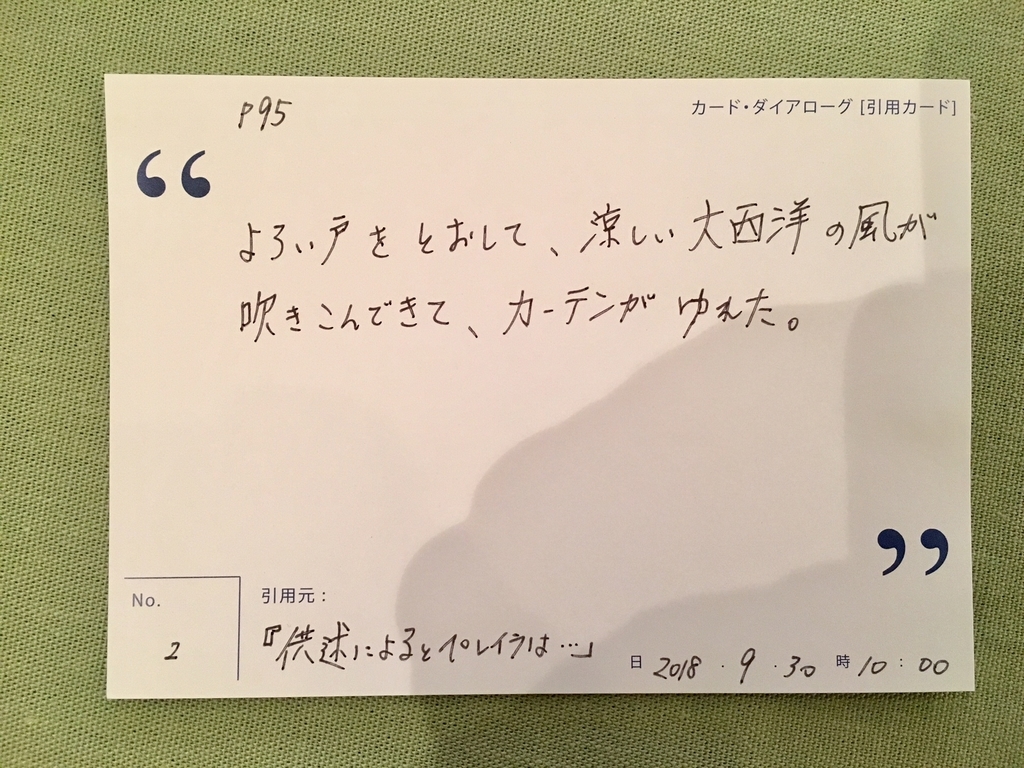 P95
カード・ダイアローグ [引用カード]
“
よろい戸をとおして、涼しい大西洋の風が
吹きこんできて、カーテンがゆれた。
”
No.
2
引用元：
『供述によるとペレイラは…」
日 2018 . 9 . 30 時 10 : 00